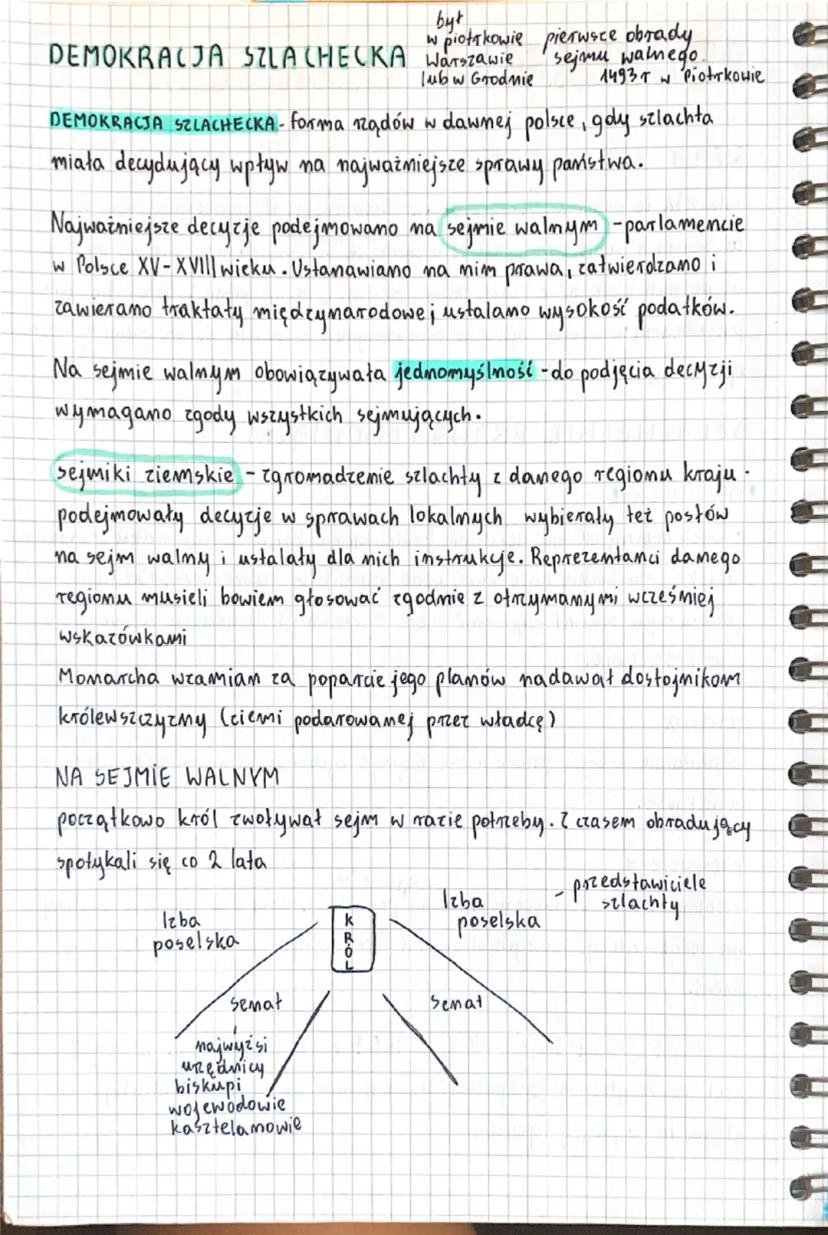 DEMOKRACJA SZLACHECKA
był
w piotrkowie
Warszawie
lub w Grodnie
pierwsze obrady
sejmu walnego
1493r w Piotrkowie
DEMOKRACJA SZLACHECKA - forma rządów w dawnej polsce, gdy szlachta
miała decydujący wpływ na najważniejsze sprawy państwa.
Najważniejsze decyzje podejmowano na sejmie walnym - parlamencie
w Polsce XV-XVIII wieku. Ustanawiano na nim prawa, zatwierdzano i
zawierano traktaty międzynarodowe i ustalano wysokość podatków.
Na sejmie walnym obowiązywała jednomyślność - do podjęcia decyzji
wymagano zgody wszystkich sejmujących.
sejmiki ziemskie - zgromadzenie szlachty z danego regionu kraju.
podejmowały decyzje w sprawach lokalnych wybierały też posłów
na sejm walny i ustalały dla nich instrukcje. Reprezentanci danego
regionu musieli bowiem głosować zgodnie z otrzymanymi wcześniej
wskazówkami
Monarcha wzamian za poparcie jego planów nadawał dostojnikom
królewszczyzny (ziemi podarowanej przez władcę)
NA SEJMIE WALNYM
początkowo król zwoływał sejm w razie potrzeby. Z czasem obradujący
spotykali się co 2 lata
Izba
poselska
KRÓL
Izba
poselska
- przedstawiciele
szlachty
senat
senat
najwyżsi
urzędnicy
biskupi
wojewodowie
kasztelanowie